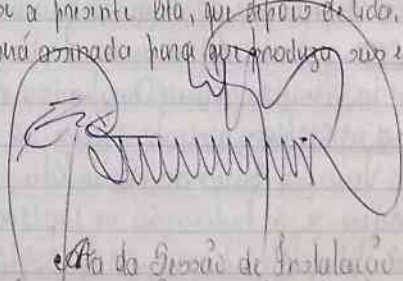 a presente Ata, que depois de lida,
será assinada para que produza seus e
Ata da Sessão de Instalação